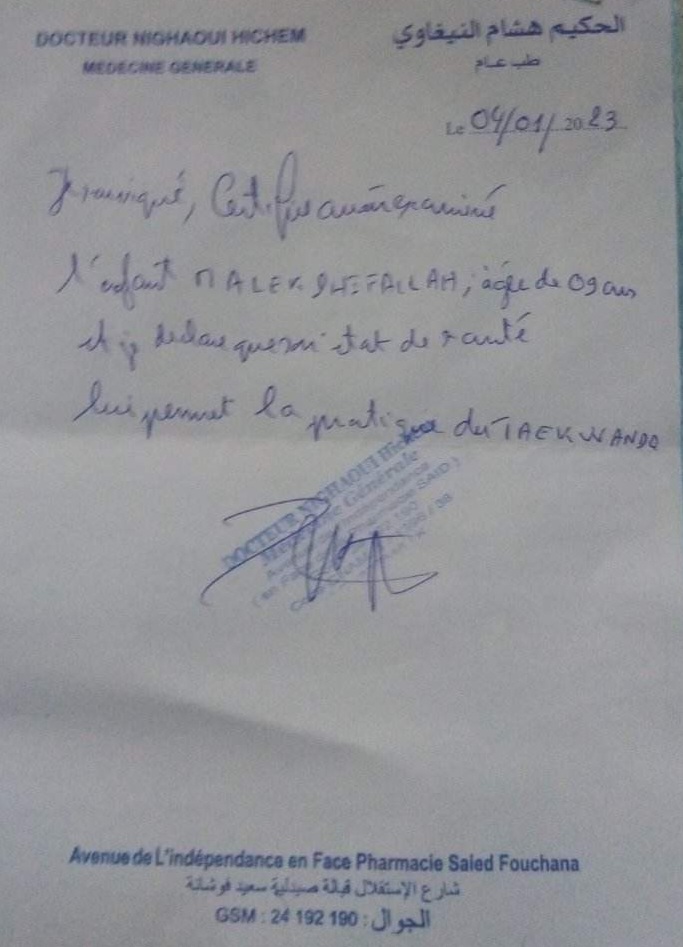 DOCTEUR NIGHAOUI HICHEM
MEDECINE GENERALE
الحكيم هشام النيغاوي
طب عام
Le 04/01/2023
Je soussigné, Certifie avoir examiné
l'enfant MALEK DHIFALLAH, âgée de 09 ans
et je déclare que son état de santé
lui permet la pratique du TAEKWANDO
DOCTEUR NIGHAOUI Hichem
Médecine Générale
Avenue de L'indépendance en Face Pharmacie Saied Fouchana
شارع الإستقلال قبالة صيدلية سعيد فوشانة
GSM : 24 192 190 : الجوال